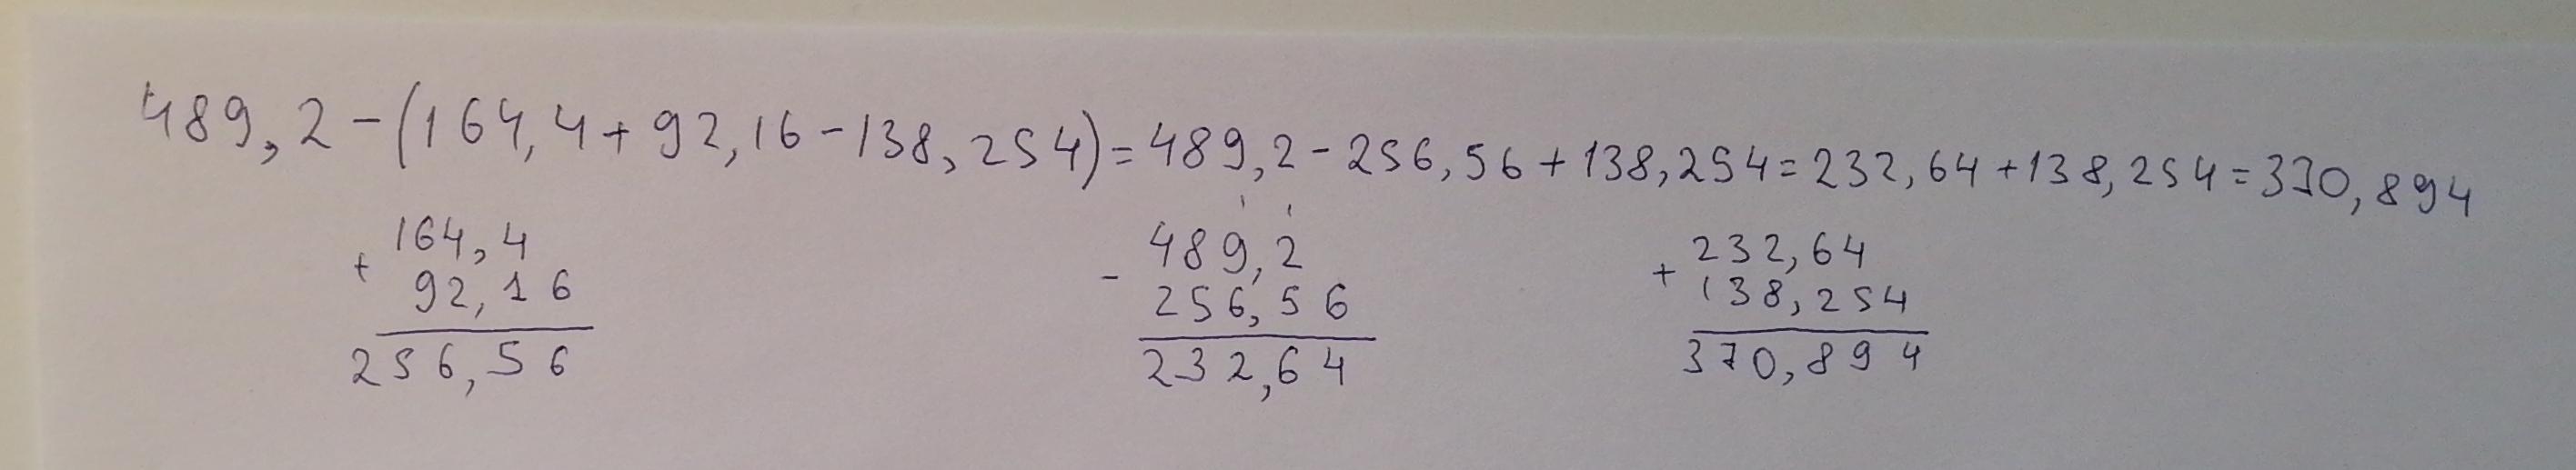 489,2-(164,4+92,16-138,254)=489,2-256,56+138,254=232,64+138,254=370,894
+ 164,4
92,16
256,56
- 489,2
256,56
232,64
+ 232,64
138,254
370,894